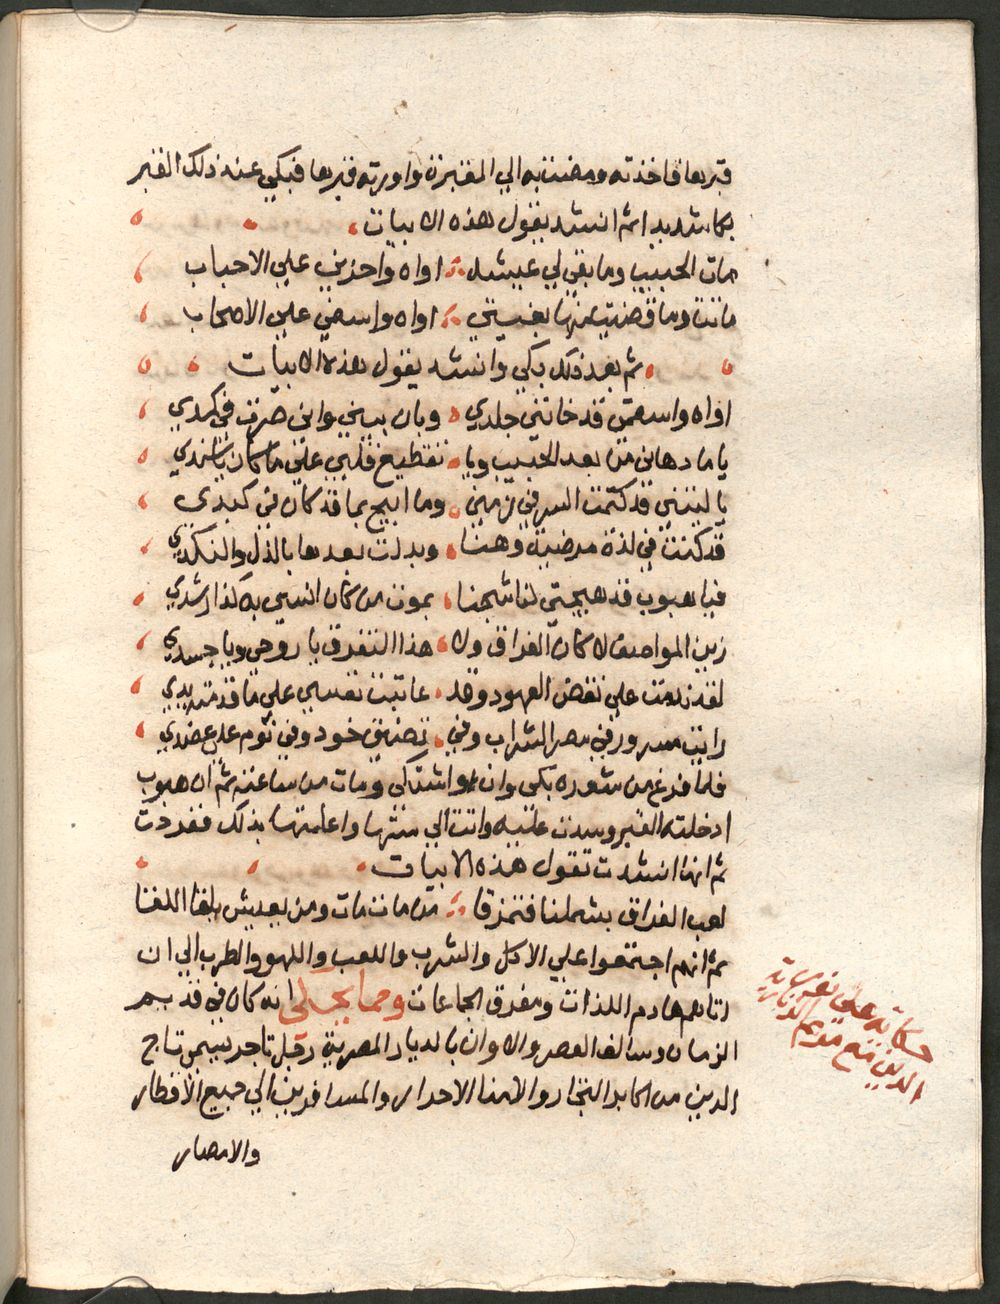 قبرها فاخذته ومضت به الي المقبرة واورته قبرها فبكي عند ذلك القبر
بكا شديدا ثم انشد يقول هذه الابيات
مات الحبيب وما بقي لي عيشه اواه واحزني علي الاحباب
ماتت وما قضيت منها بغيتي اواه واسفي علي الاصحاب
ثم بعد ذلك بكي وانشد يقول هذه الابيات
اواه واسفي قد خانني جلدي وبان بيني واني صرت في كمدي
يا ما دهاني من بعد الحبيب ويا تقطيع قلبي علي ما كان
يا ليتني قد كتمت السر في زمني وما ابيح بما قد كان في كبدي
قد كنت في لذة مرضية وهنا وبدلت بعدها بالذل والنكدي
فيا هبوب قد هيجتي لنا شجنا بموت من كان انسي به كذا رشدي
زين المواصف لا كان الفراق ولا هذا التفرق يا روحي ويا جسدي
لقد ندمت علي نقض العهود وقد عاتبت نفسي علي ما قدمت يدي
فلما فرغ من شعره بكي وان واشتكي ومات من ساعته ثم ان هبوب
ادخلته القبر وسدت عليه واتت الي ستها واعلمتها بذلك
ثم انها انشدت تقول هذه الابيات
لعب الفراق بشملنا فتمزقا من مات مات ومن يعيش يلقا اللقا
ثم انهم اجتمعوا علي الاكل والشرب واللعب واللهو والطرب الي ان
اتاهم هادم اللذات ومفرق الجماعات ومما يحكي انه كان في قديم
الزمان وسالف العصر والاوان بالديار المصرية رجل تاجر يسمي تاج
الدين من اكابر التجار والامنا الاحرار والمسافرين الي جميع الاقطار
والامصار
حكاية علي نور
الدين مع مريم الزنارية